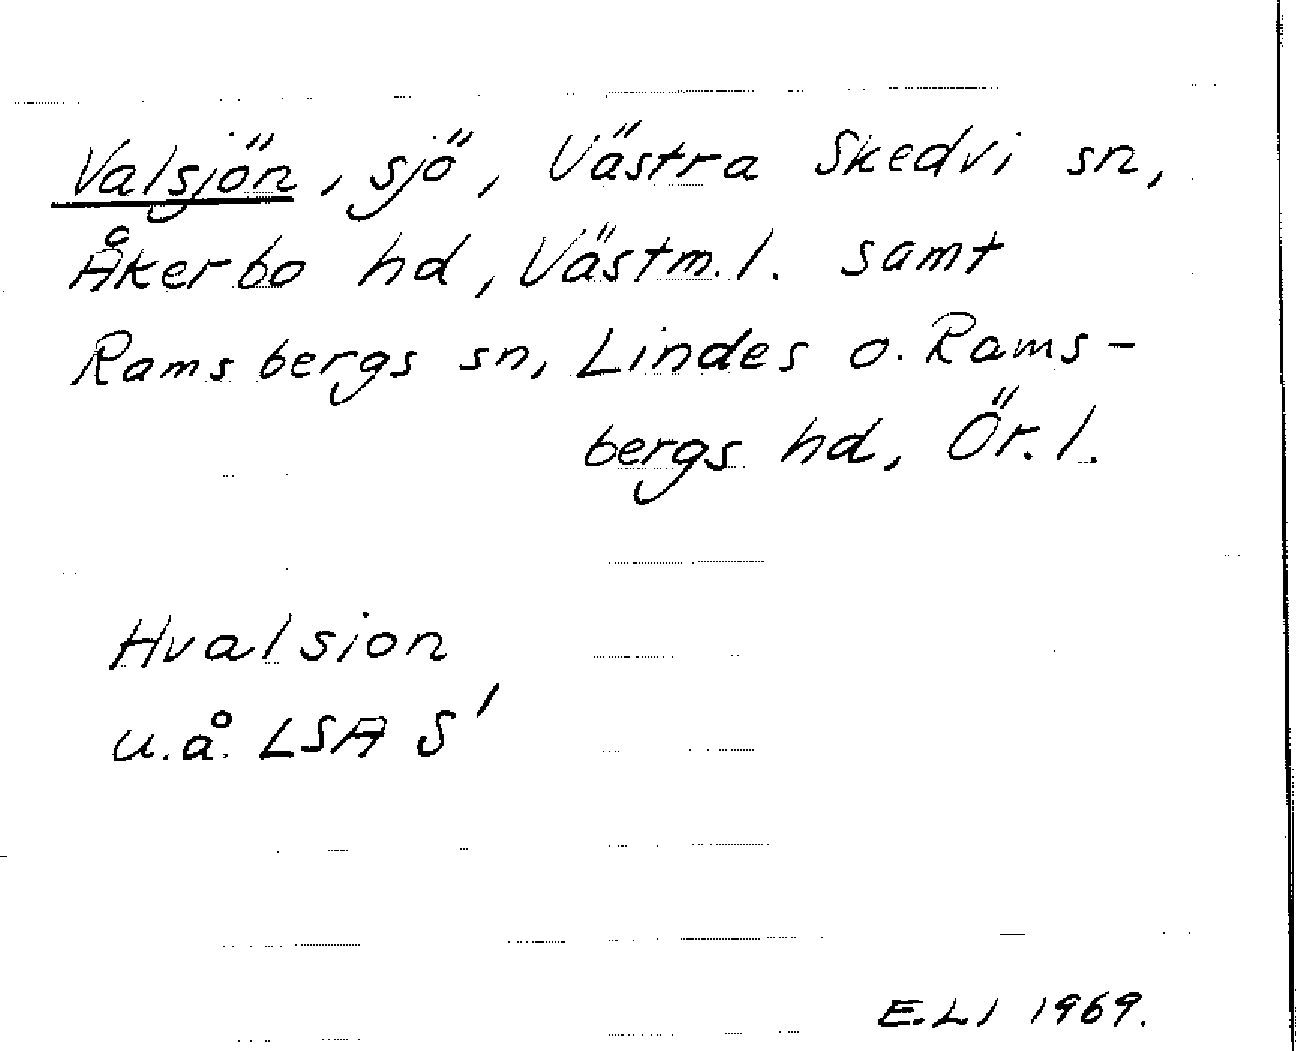 Valsjön, sjö, Västra Skedvi sn,
Åkerbo hd, Västm.l. samt
Ramsbergs sn, Lindes o. Rams-
bergs hd, Ör.l.
Hvalsion
u.å. LSA S'
E.LI 1969.